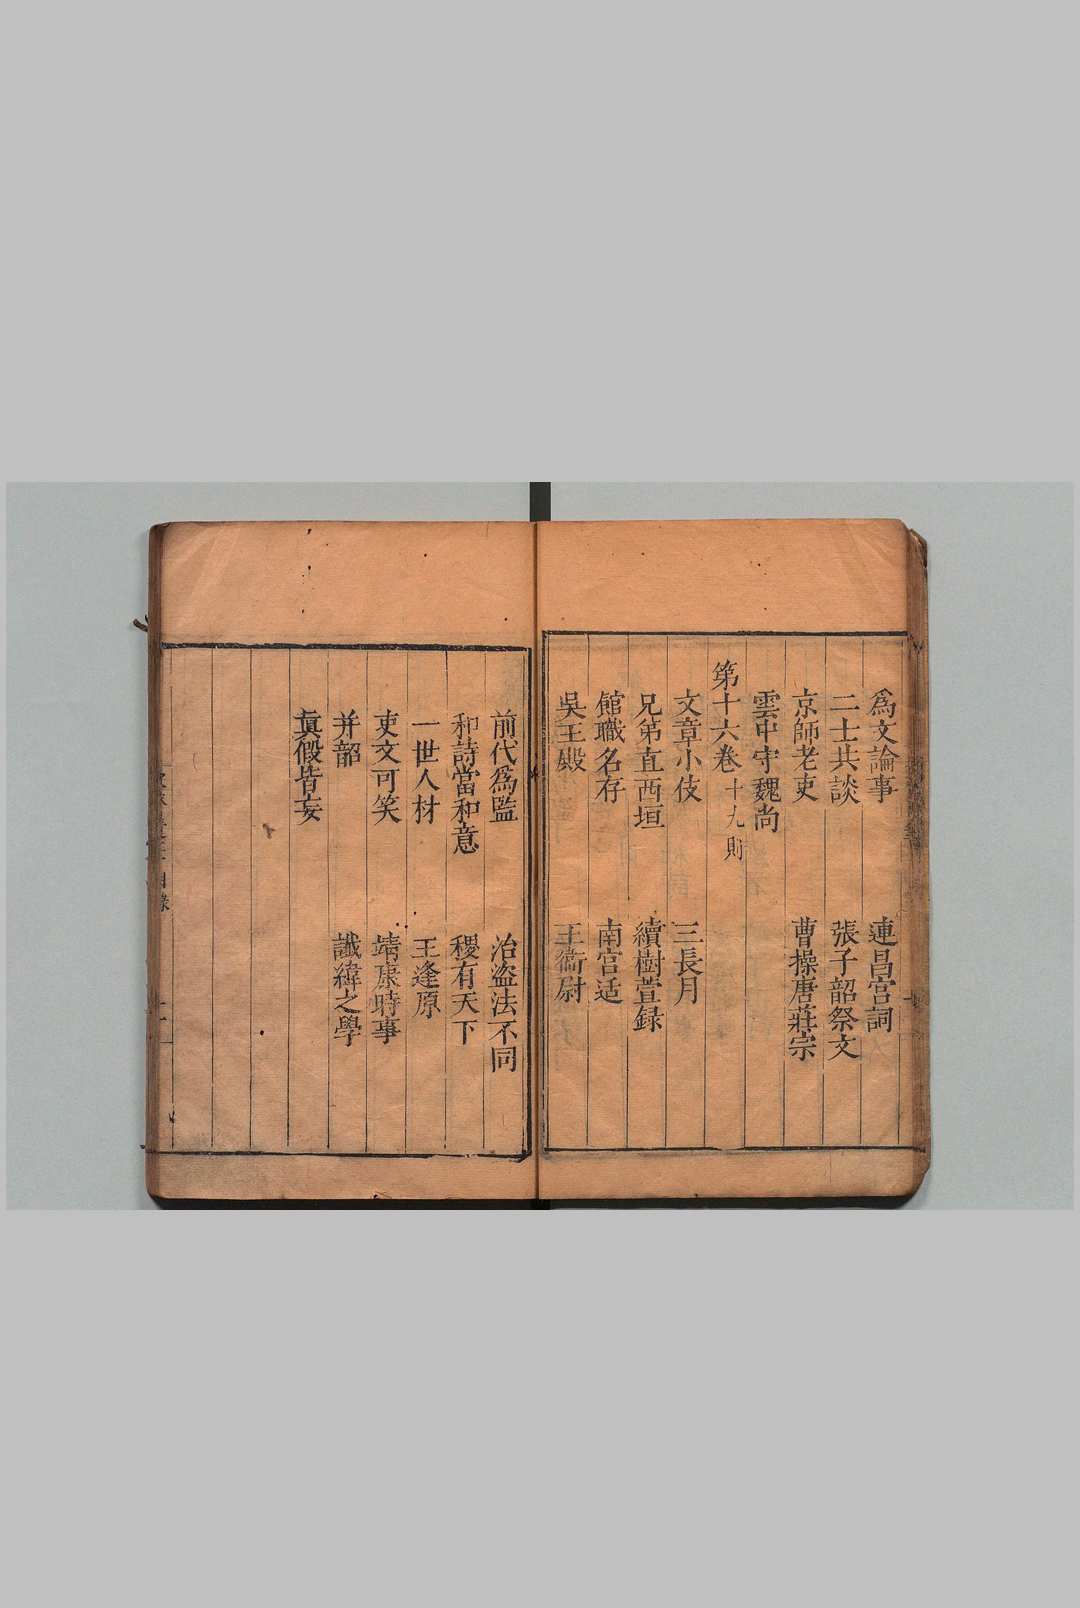 爲文論事　連昌宮詞
二士共談　張子韶祭文
京師老吏　曹操唐莊宗
雲中守魏尚
第十六卷 十九則
文章小伎　三長月
兄第直西垣　續樹萱録
館職名存　南宮适
吳王殿　王衛尉
前代爲監　治盗法不同
和詩當和意　稷有天下
一世人材　王逢原
吏文可笑　靖康時事
并韶　讖緯之學
眞假皆妄
目錄